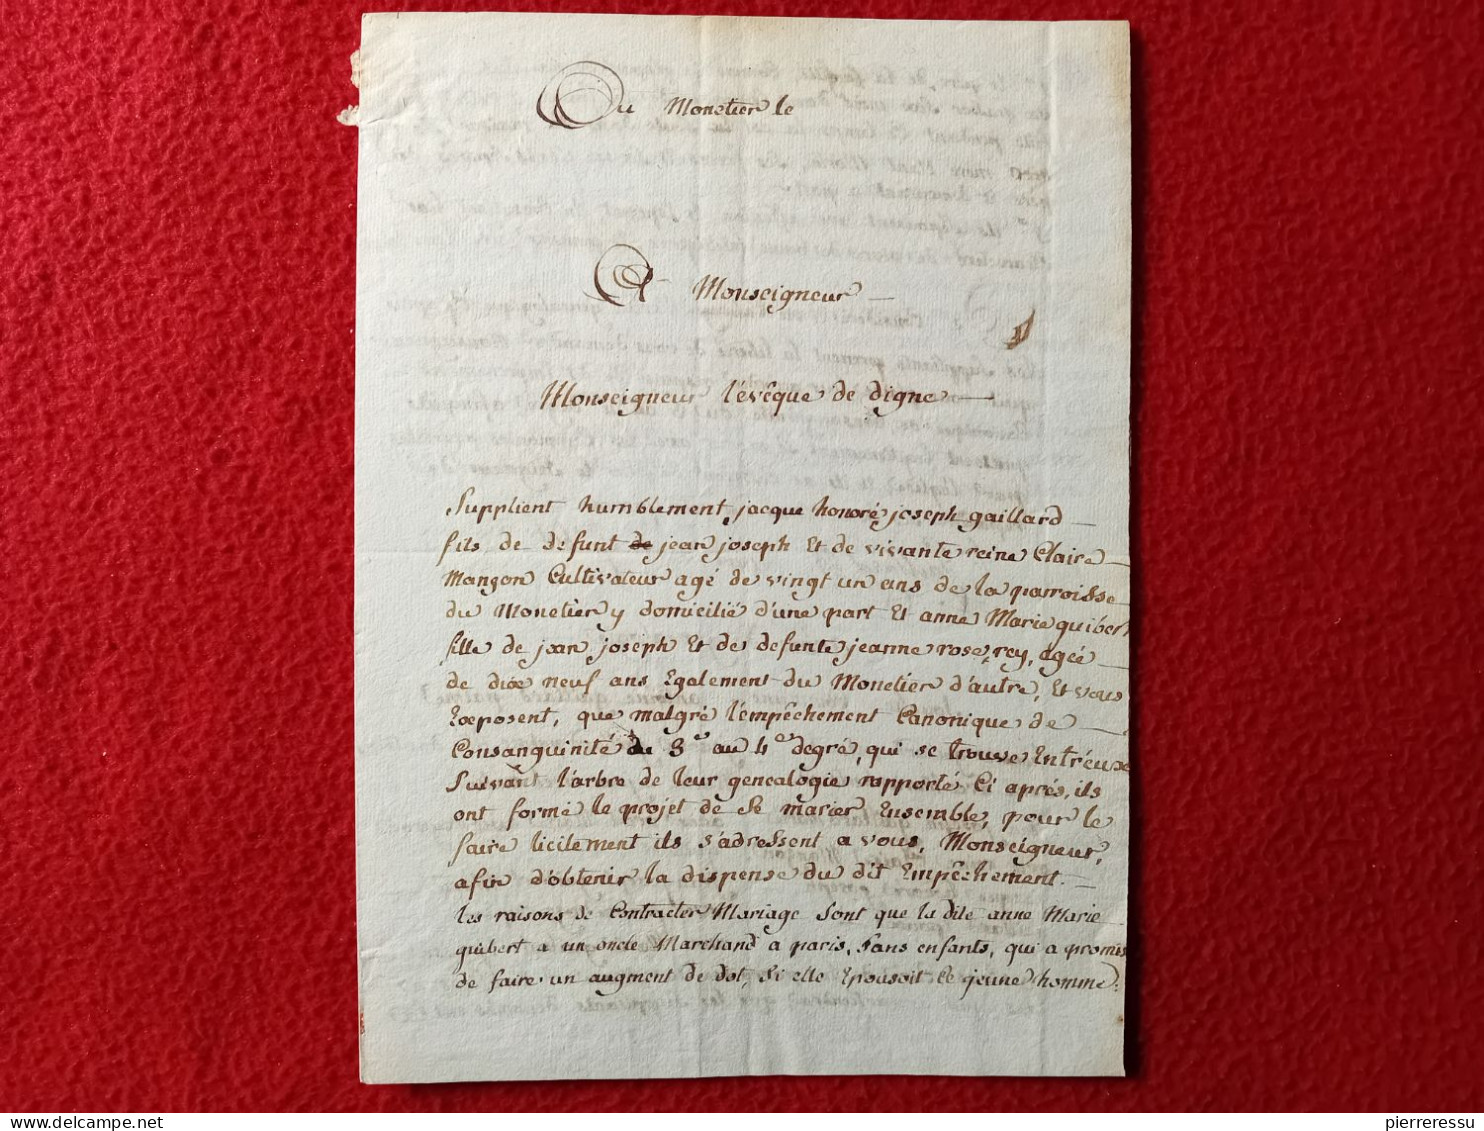 Du Monetier le
A Monseigneur
Monseigneur l'évêque de digne
Supplient humblement, jacque honoré joseph gaillard
fils de defunt de jean joseph Et de vivante reine Claire
Manson Cultivateur agé de vingt un ans de la parroisse
du Monetier y domicilié d'une part Et anne Marie guibert
fille de jean joseph Et de defunte jeanne rose rey, agée
de dixe neuf ans Egalement du Monetier d'autre, Et vous
Exposent, que malgré l'empêchement Canonique de
Consanguinité du 3e au 4e degré, qui se trouve Entréux
Suivant l'arbre de leur genealogie rapporté Ci aprés, ils
ont formé le projet de se marier Ensemble, pour le
faire licitement ils s'adressent a vous, Monseigneur,
afin d'obtenir la dispense du dit Empêchement.
les raisons de Contracter Mariage Sont que la dite anne Marie
guibert a un oncle Marchand a paris, Sans enfants, qui a promis
de faire un augment de dot, Si elle Epousoit le jeune homme.
delcampe.net
pierreressu